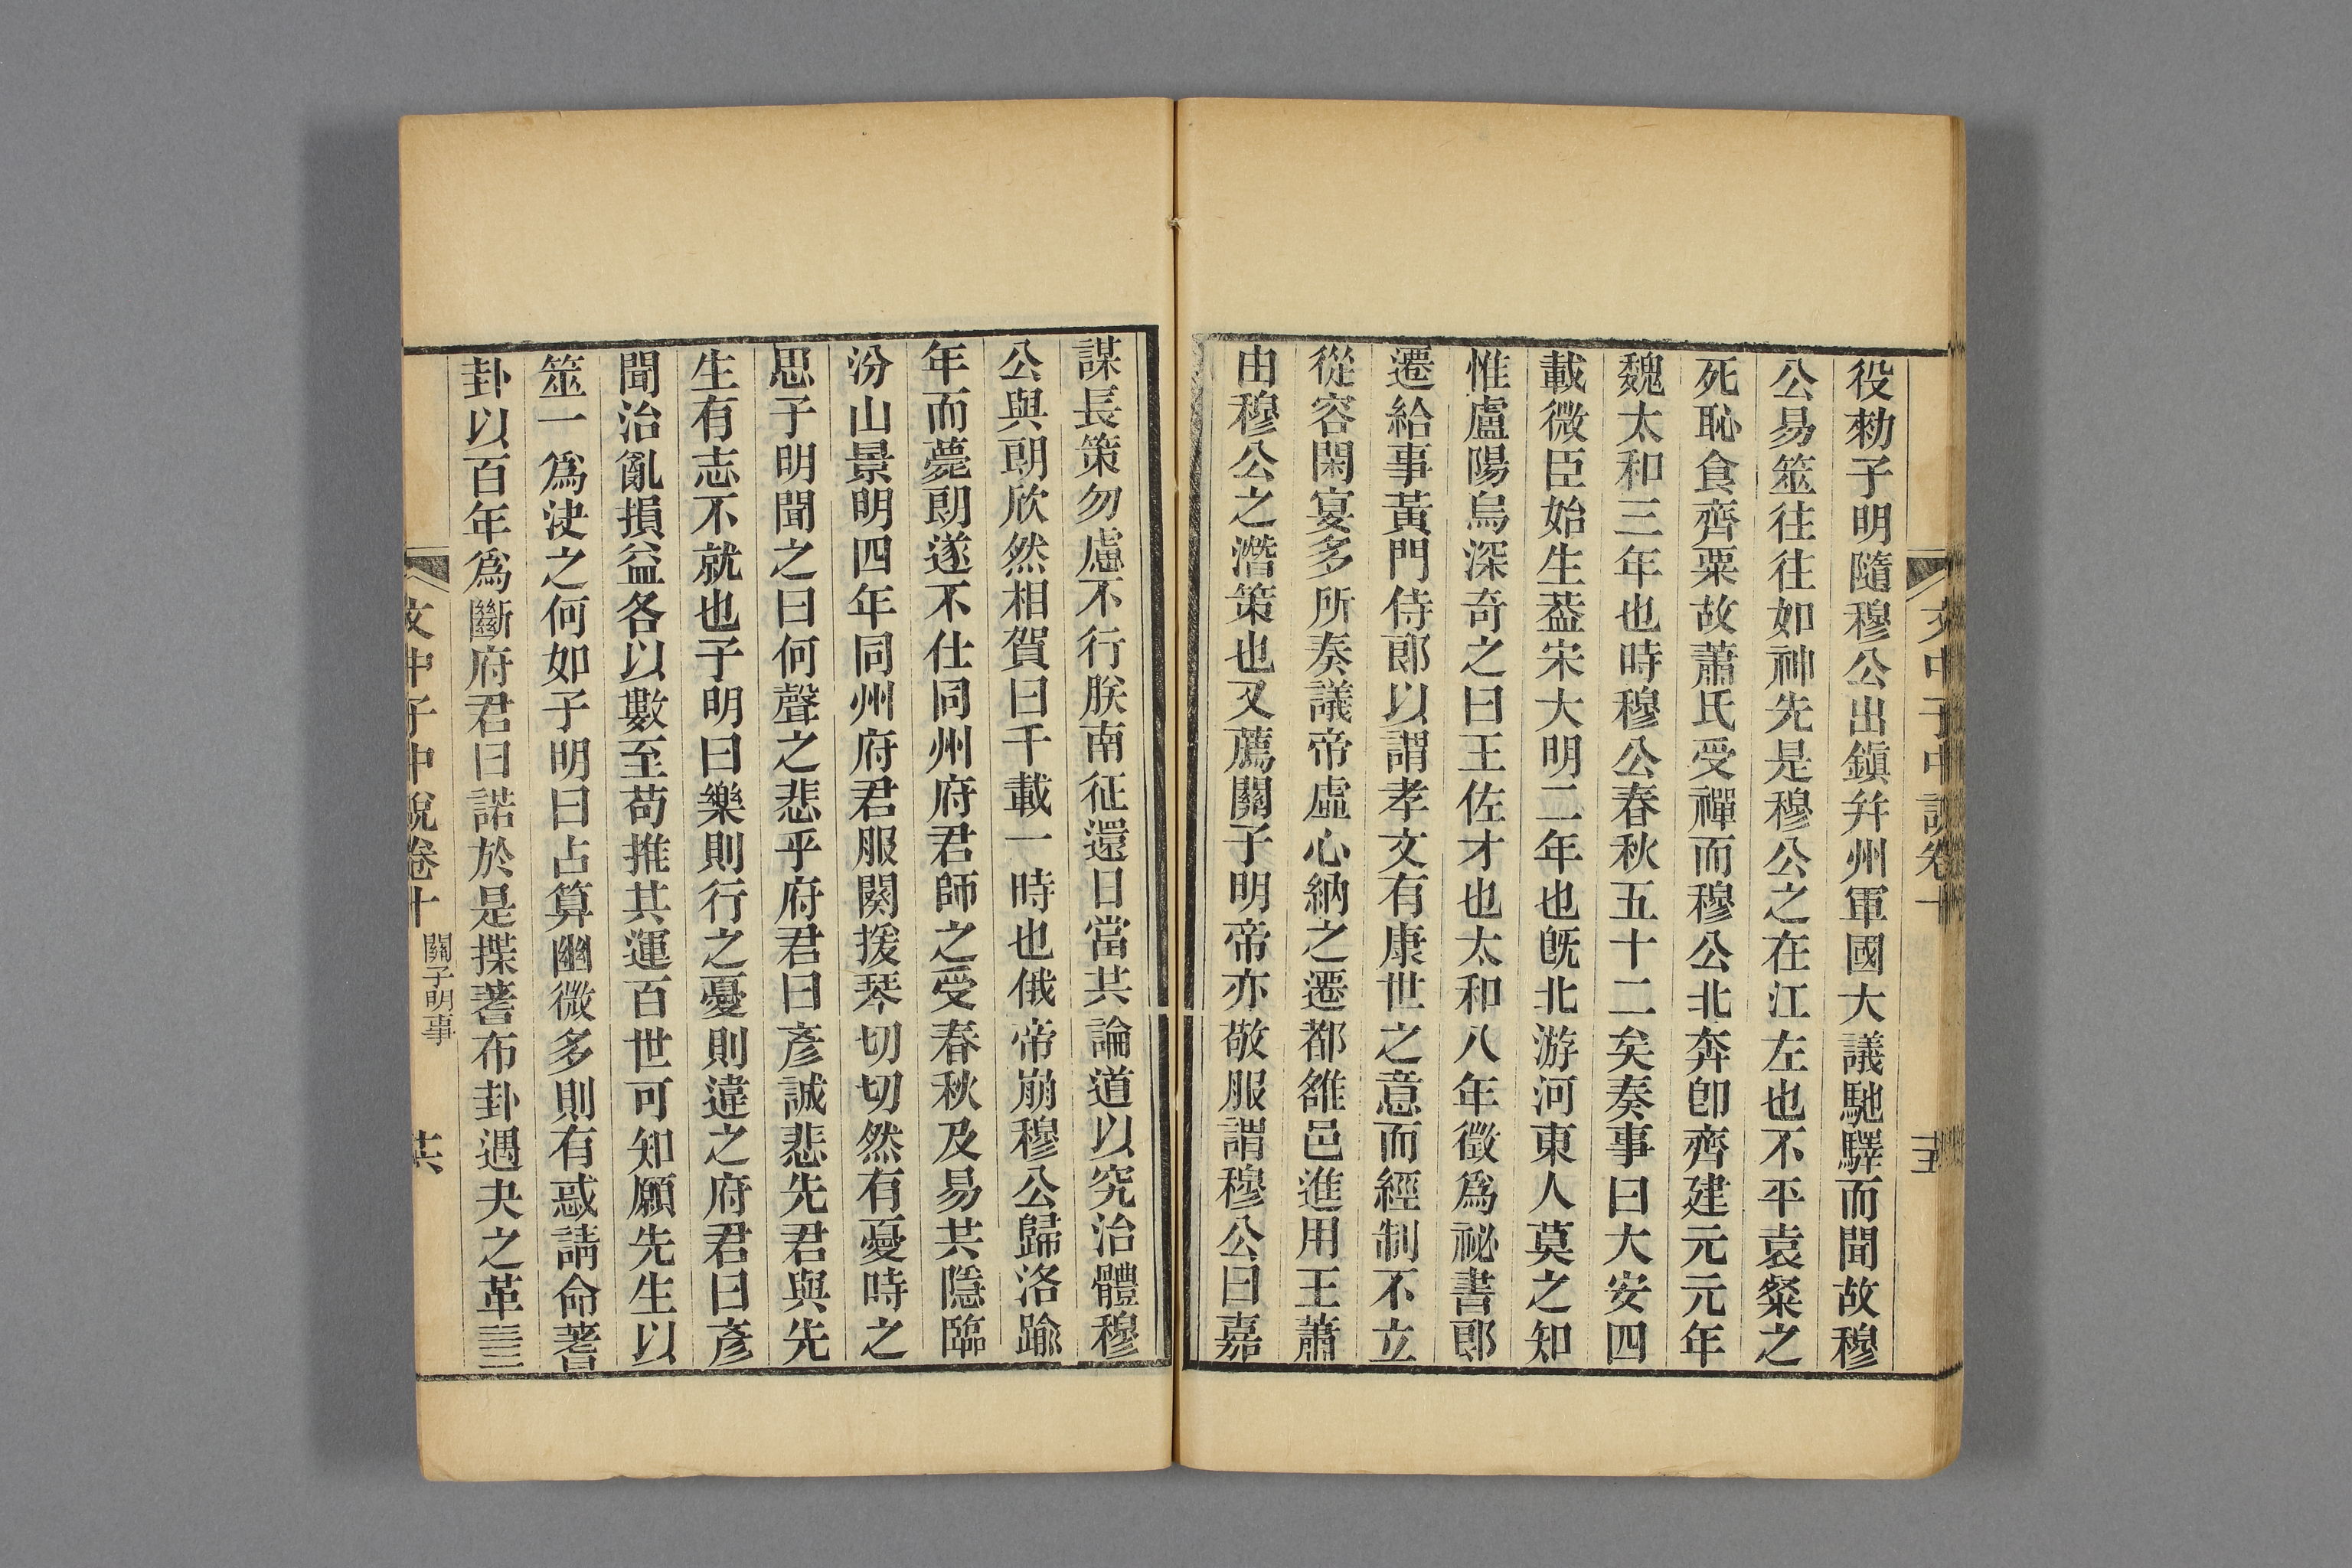 文中子中說卷十
十五
役勑子明隨穆公出鎭幷州軍國大議馳驛而聞故穆
公易筮往往如神先是穆公之在江左也不平袁粲之
死恥食齊粟故蕭氏受禪而穆公北奔卽齊建元元年
魏太和三年也時穆公春秋五十二矣奏事曰大安四
載微臣始生葢宋大明二年也旣北游河東人莫之知
惟盧陽烏深奇之曰王佐才也太和八年徵爲祕書郎
遷給事黃門侍郎以謂孝文有康世之意而經制不立
從容閑宴多所奏議帝虛心納之遷都雒邑進用王蕭
由穆公之潛策也又薦關子明帝亦敬服謂穆公曰嘉
謀長策勿慮不行朕南征還日當共論道以究治體穆
公與朗欣然相賀曰千載一時也俄帝崩穆公歸洛踰
年而薨朗遂不仕同州府君師之受春秋及易共隱臨
汾山景明四年同州府君服闋援琴切切然有憂時之
思子明聞之曰何聲之悲乎府君曰彥誠悲先君與先
生有志不就也子明曰樂則行之憂則違之府君曰彥
聞治亂損益各以數至苟推其運百世可知願先生以
筮一爲决之何如子明曰占算幽微多則有惑請命蓍
卦以百年爲斷府君曰諾於是揲蓍布卦遇夬之革䷪
文中子中說卷十
關子明事
十六